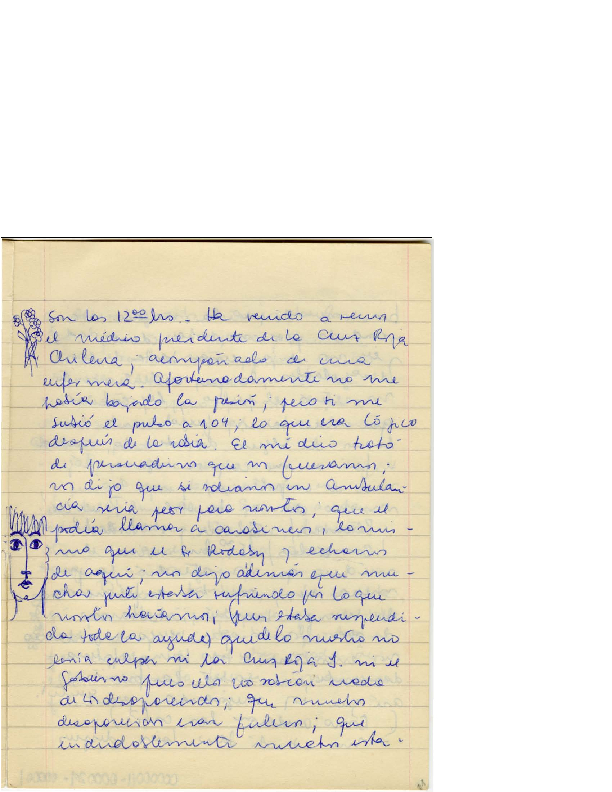 Son las 12⁰⁰ hrs. - Ha venido a vernos
el médico presidente de la Cruz Roja
Chilena, acompañado de una
enfermera. Afortunadamente no me
había bajado la presión, pero si me
subió el pulso a 104, lo que era lógico
después de la rabia. El médico trató
de persuadirnos que nos fuesamos;
nos dijo que si saliamos en Ambulan-
cia sería peor para nosotros; que el
podía llamar a carabineros, lo mis-
mo que el Sr. y echarnos
de aquí; nos dijo además que mu-
cha gente estaba sufriendo por lo que
nosotros haciamos, pues estaba suspendi-
da toda la ayuda; que de lo nuestro no
tenía culpa ni la Cruz Roja I. ni el
Gobierno pues ellos no sabían nada
de los desaparecidos; que muchos
desaparecidos eran falsos; que
indudablemente muchos esta-